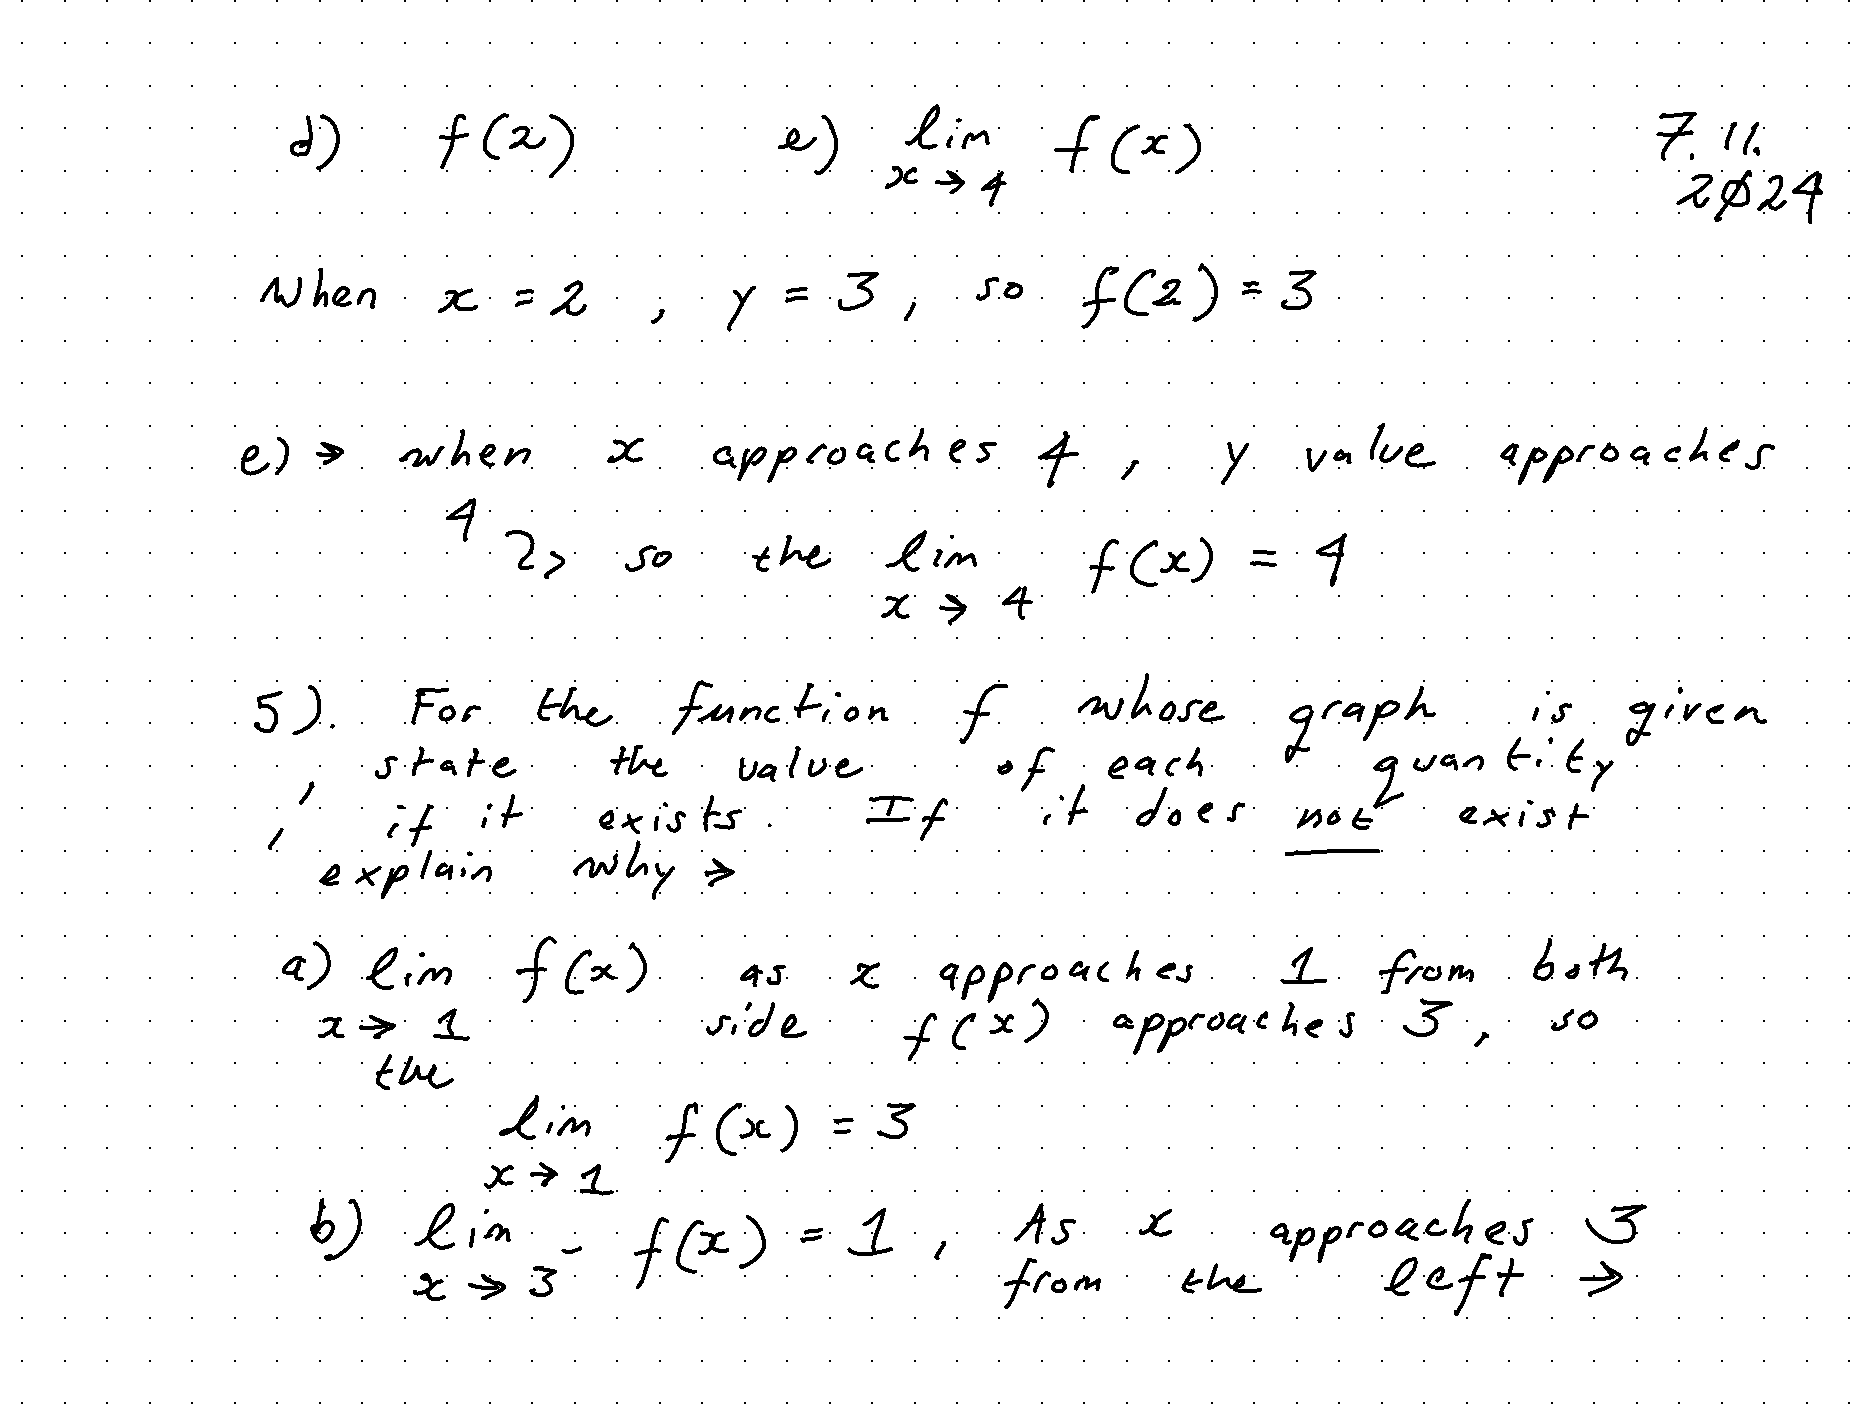 d) f(2) e) lim f(x) 7.11.
x → 4 2024
When x = 2 , y = 3 , so f(2) = 3
e) → when x approaches 4 , y value approaches
4
so the lim f(x) = 4
x → 4
5). For the function f whose graph is given
, state the value of each quantity
, if it exists. If it does not exist
explain why →
a) lim f(x) as x approaches 1 from both
x → 1 side f(x) approaches 3, so
the
lim f(x) = 3
x → 1
b) lim f(x) = 1 , As x approaches 3
x → 3⁻ from the left →